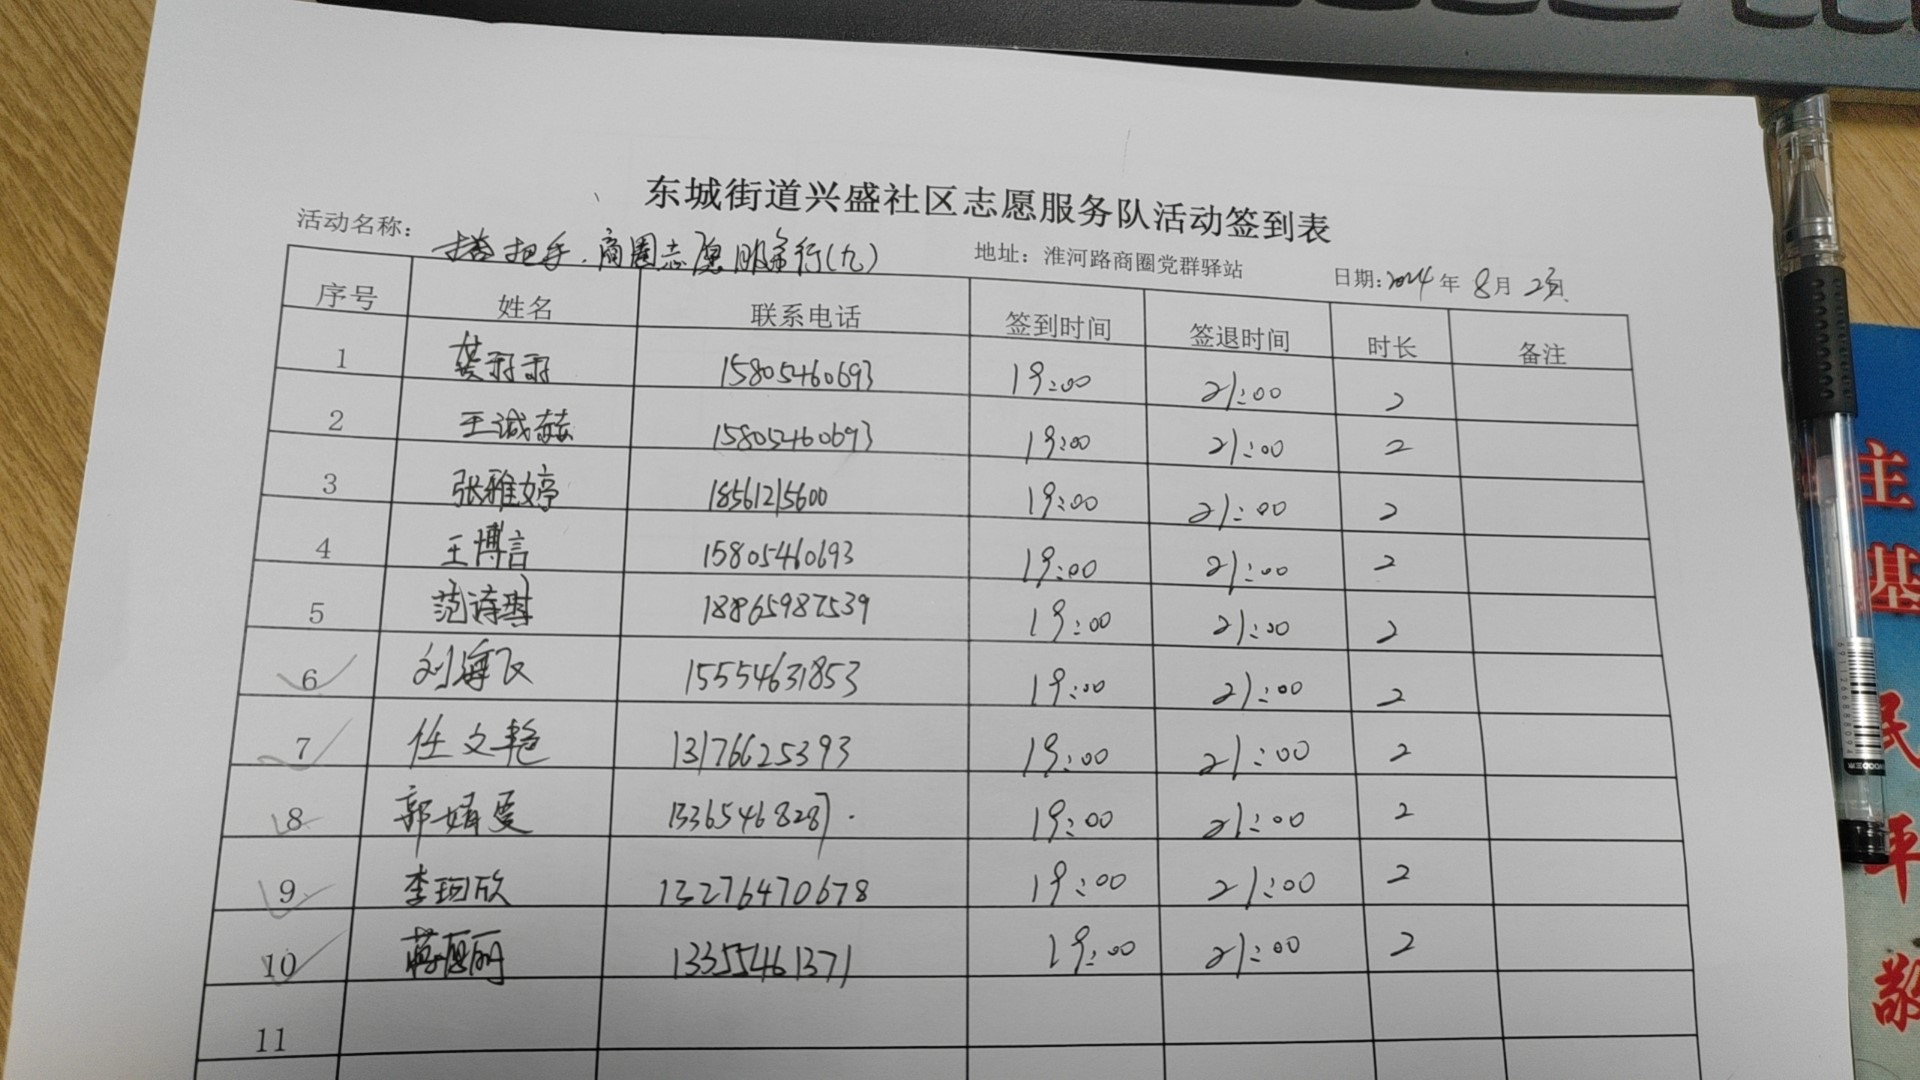 东城街道兴盛社区志愿服务队活动签到表
活动名称： 搭把手.商圈志愿服务行(九) 地址：淮河路商圈党群驿站 日期:2024年8月2日
序号 姓名 联系电话 签到时间 签退时间 时长 备注
1 15805460693 19:00 21:00 2
2 王诚赫 15805460693 19:00 21:00 2
3 张雅婷 18561215600 19:00 21:00 2
4 王博言 15805460693 19:00 21:00 2
5 范诗琪 18865987539 19:00 21:00 2
6 刘海飞 15554631853 19:00 21:00 2
7 任文艳 13176625393 19:00 21:00 2
8 郭婧雯 13365468287 19:00 21:00 2
9 李珂欣 13276470678 19:00 21:00 2
10 13355461371 19:00 21:00 2
11
主
基
民
平
敬